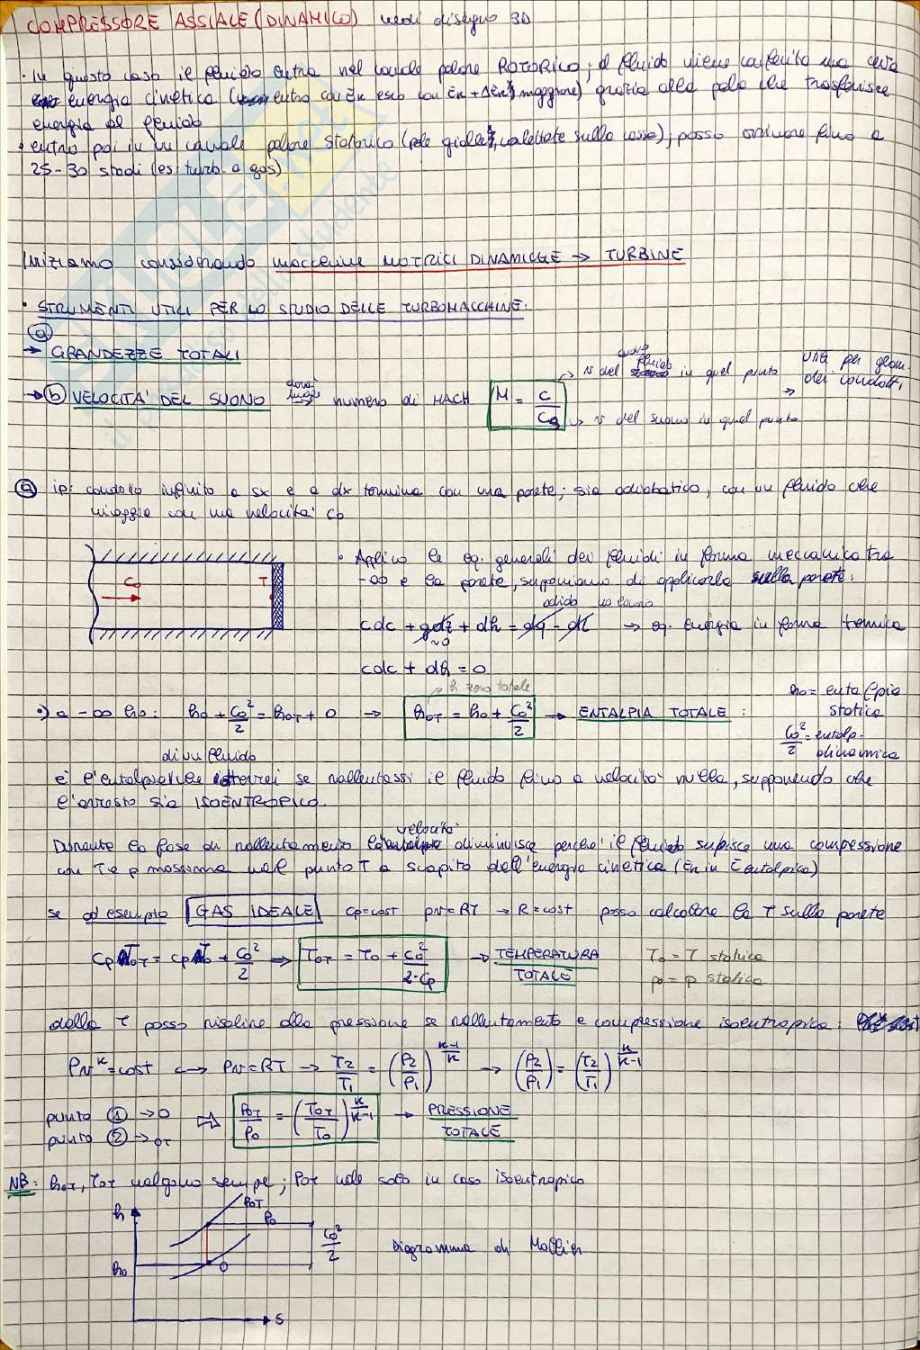 COMPRESSORE ASSIALE (DINAMICO) vedi disegno 3D
· In questo caso il fluido entra nel canale palare ROTORICO; il fluido viene conferito una certa
energia cinetica (entra con Ec esce con Ec + ΔEc maggiore) grazie alle pale che trasferisce
energia al fluido
· entro poi in un canale palare statorico (pale calettate sulla cassa); posso arrivare fino a
25-30 stadi (es: turb. a gas)
Iniziamo considerando macchine MOTRICI DINAMICHE → TURBINE
· STRUMENTI UTILI PER LO STUDIO DELLE TURBOMACCHINE:
(a)
→ GRANDEZZE TOTALI
→ (b) VELOCITA' DEL SUONO numero di MACH M = c/cs
→ v del fluido in quel punto → utile per geom. dei condotti
→ v del suono in quel punto
(a) ip: condotto infinito a sx e a dx termina con una parete; sia adiabatico, con un fluido che
viaggia con una velocità c0
c0 T
· Applico le eq. generali dei fluidi in forma meccanica tra
-∞ e la parete, supponiamo di applicarla sulla parete:
cdc + gdz + dh = dq - dl → eq. energia in forma termica
~0 adiab no lavoro
cdc + dh = 0
h zero totale
·) a -∞ h0: h0 + c0²/2 = h0T + 0 → h0T = h0 + c0²/2 → ENTALPIA TOTALE:
h0 = entalpia statica
c0²/2 = entalp. dinamica
è l'entalpia che otterrei se rallentassi il fluido fino a velocità nulla, supponendo che
di un fluido
l'arresto sia ISOENTROPICO.
Durante la fase di rallentamento la velocità diminuisce perchè il fluido subisce una compressione
con T e p massima nel punto T a scapito dell'energia cinetica (Ec in E entalpica)
se ad esempio GAS IDEALE cp=cost pv=RT → R=cost posso calcolare la T sulla parete
cp T0T = cp T0 + c0²/2 → T0T = T0 + c0²/(2·cp) → TEMPERATURA TOTALE
T0 = T statica
p0 = p statica
dalla T posso risalire alla pressione se rallentamento e compressione isoentropica:
Pv^K = cost ↔ Pv = RT → T2/T1 = (P2/P1)^((K-1)/K) → (P2/P1) = (T2/T1)^(K/(K-1))
punto (1) → 0
punto (2) → 0T
⇒ P0T/P0 = (T0T/T0)^(K/(K-1)) → PRESSIONE TOTALE
NB: h0T, T0T valgono sempre; P0T vale solo in caso isoentropico
h P0T P0 c0²/2 h0 0 s
Diagramma di Mollier